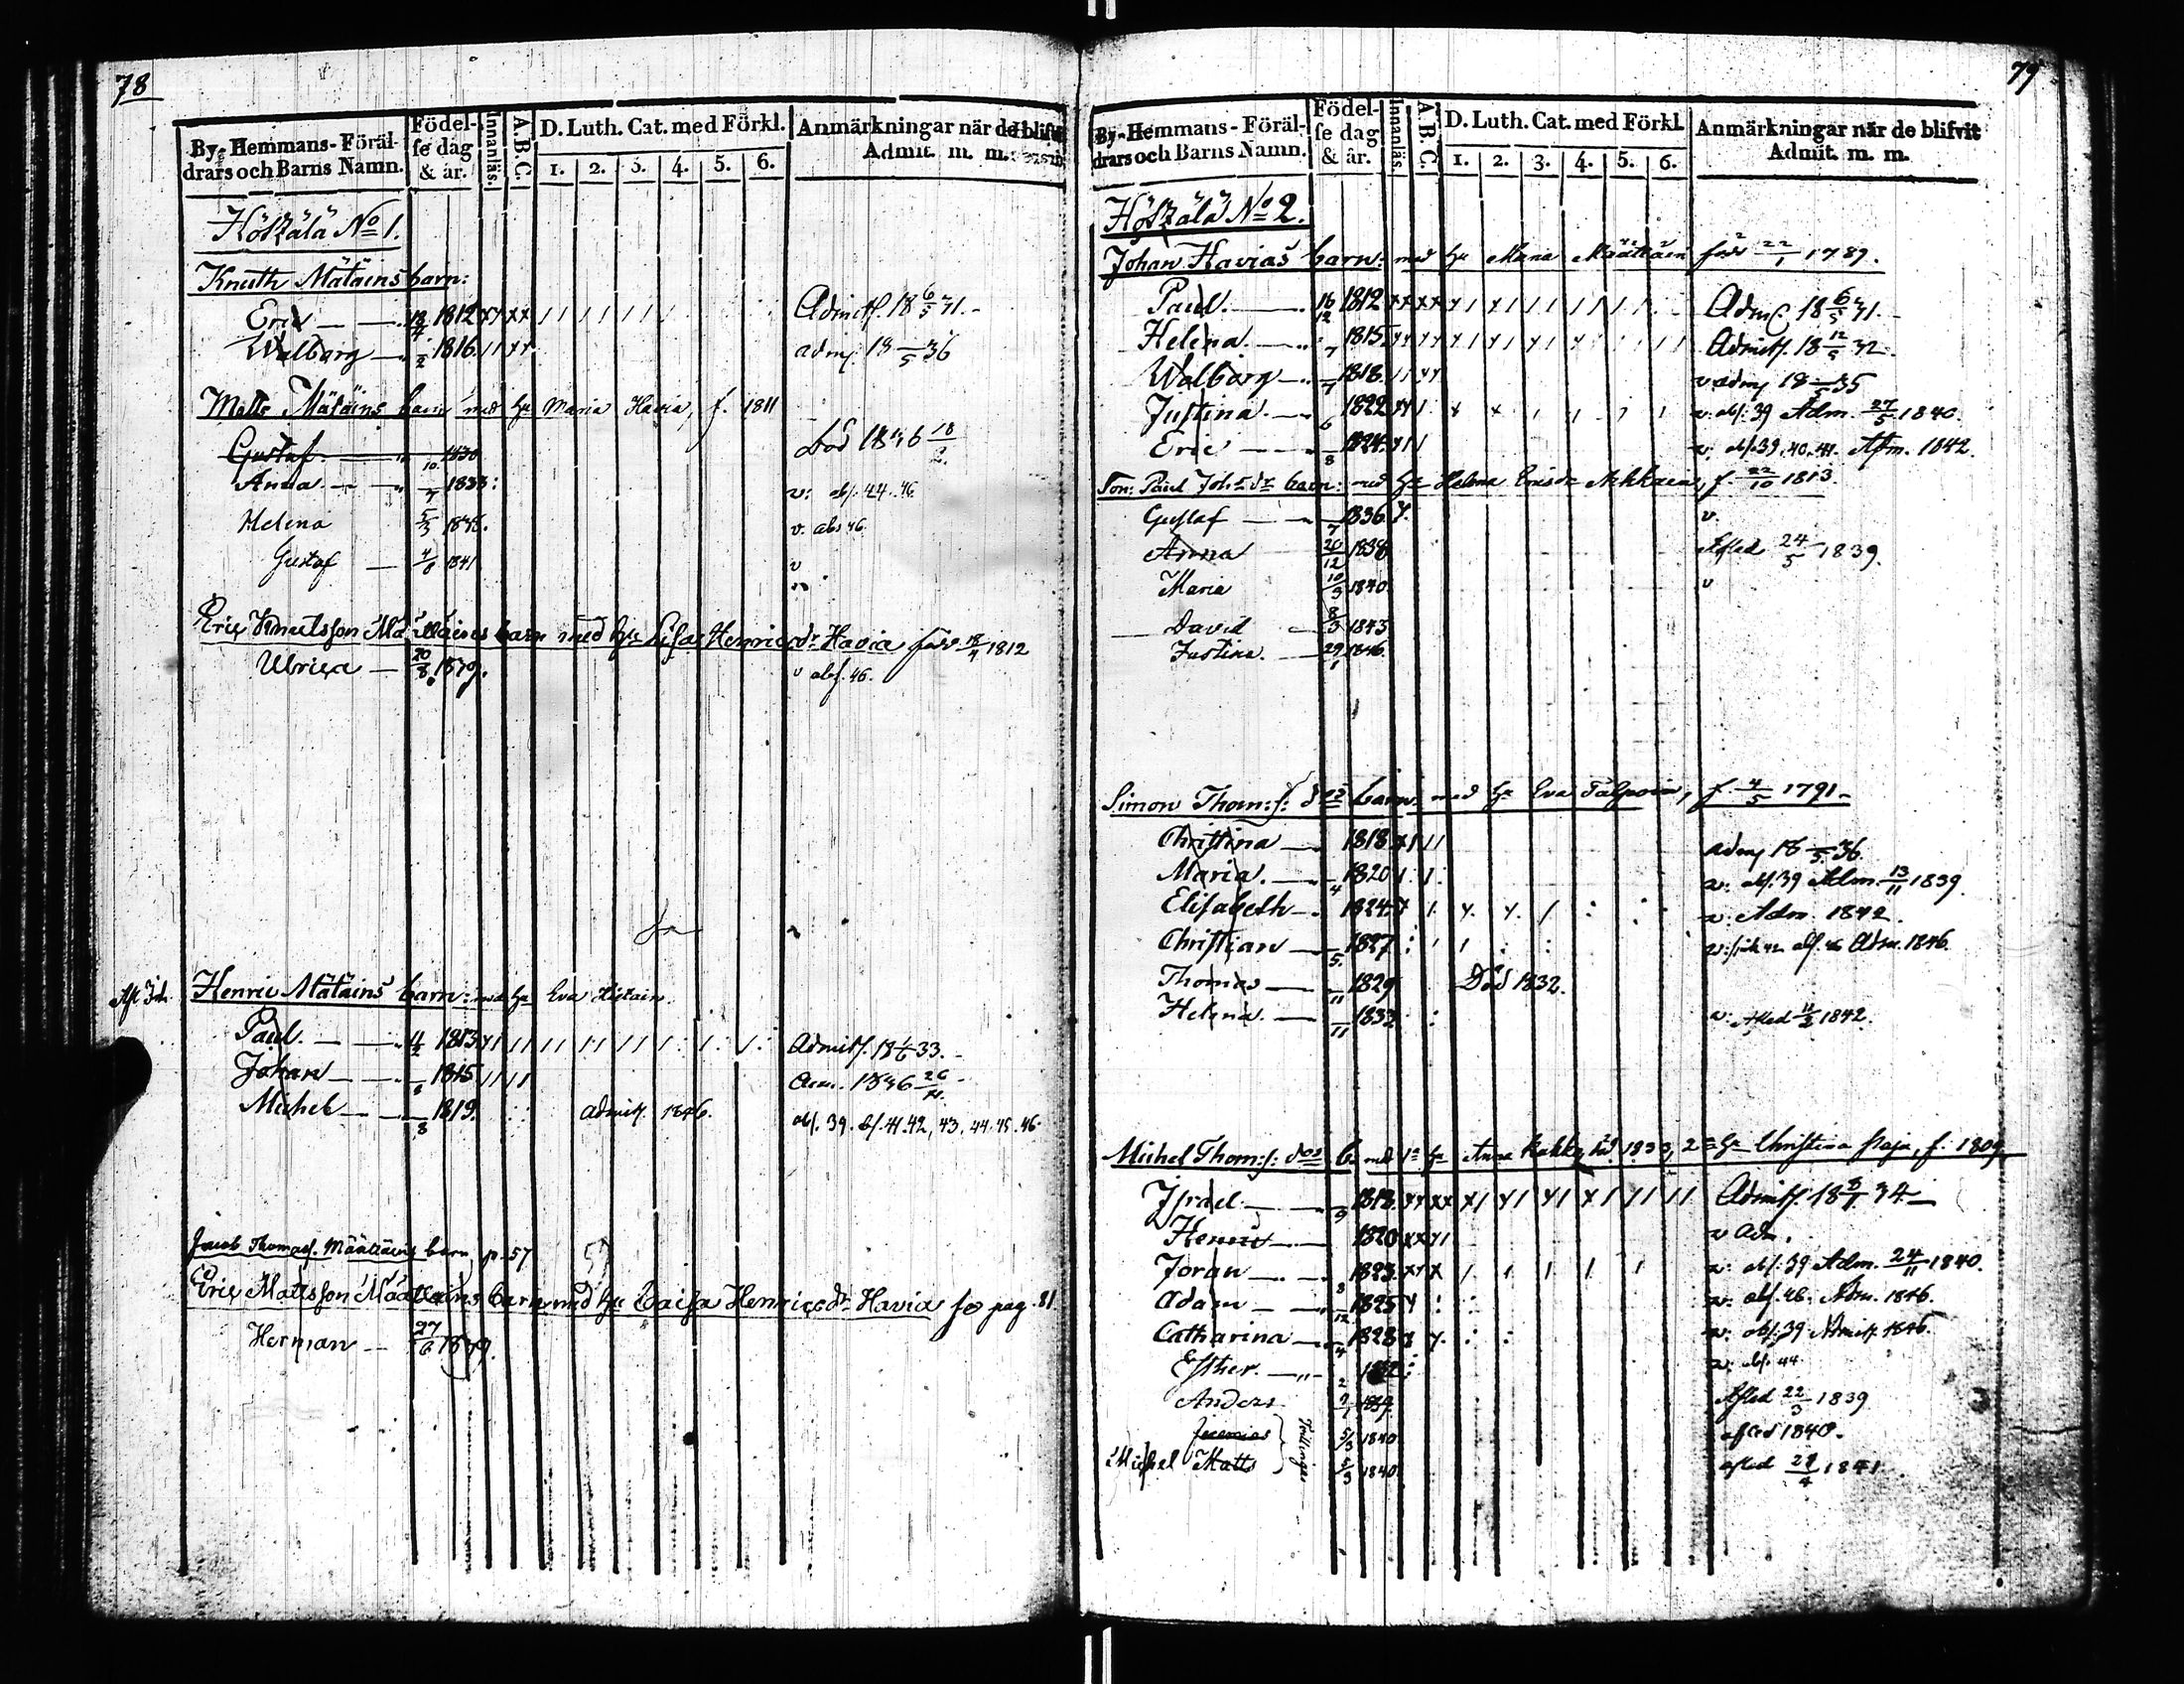 78
By-Hemmans-Föräl-
drars och Barns Namn.
Födel-
se dag
& år.
Innanläs.
A.B.C.
D. Luth. Cat. med Förkl.
1. 2. 3. 4. 5. 6.
Anmärkningar när de blifvit
Admit. m. m.
No 1.
Knuth Mätäins barn:
Eric 18/4 1812 Admitt. 18 6/5 31.
Walborg 1816 adm. 18 /5 36
Matts Mätäins barn med Hu Maria Havia, f. 1811
Gustaf /10 1830 Död 1836 18/2.
Anna /7 1833: v: abs. 44. 46
Helena v. abs 46
Gustaf 4/8 1841 v
Eric Knutsson Määttäins barn med Hu Lisa Henricsdr Havia född 1812
Ulrica 20/8 1839. v abs. 46.
Henric Mätäins barn: med Hu Eva
Paul. 1813 Admitt. 18 33.
Johan 1815
Michel /8 1819. admitt. 1846. abs. 39. 41. 42, 43, 44. 45. 46.
Jacob Thomas. Määttäins barn, p. 57
Eric Mattsson Määttäins barn med Hu Caisa Henricsdr Havia se pag. 81
Herman 27/6 1839.
79
By-Hemmans-Föräl-
drars och Barns Namn.
Födel-
se dag
& år.
Innanläs.
A.B.C.
D. Luth. Cat. med Förkl.
1. 2. 3. 4. 5. 6.
Anmärkningar när de blifvit
Admit. m. m.
No 2.
Johan Havias barn: med Hu Maria Määttäin född 22/1 1789.
Paul. 16/12 1812 Adm 18 6/5 31.
Helena. /7 1815 Admitt. 18 12/5 32.
Walborg /7 1818. v adm 18 /5 35
Justina. /6 1822 v. abs: 39 Adm. 27/5 1840.
Eric /8 1824. v. abs. 39, 40, 41. Adm. 1842.
Son: Paul Joh:s dr barn: med Hu Helena Ericsdr f. 22/10 1813.
Gustaf /7 1836 v.
Anna 20/12 1838 Afled 24/5 1839.
Maria 10/9 1840. v
David 8/3 1843
Justina. 29/1 1846.
Simon Thom:s: dos barn: med Hu Eva f. 4/5 1791.
Christina 1818 adm 18 /5 36.
Maria. /4 1820 v: abs: 39 Adm. 13/11 1839.
Elisabeth 1824. v. Adm. 1842.
Christian /5. 1827. v: sjuk 42 abs. 46 Adm. 1846.
Thomas /11 1829 Död 1832.
Helena. /11 1832 v. Afled 11/2 1842.
Michel Thom:s: dos b. med 1a Hu Anna död 1833, 2a Hu Christina f. 1809
Israel /9 1818. Admitt. 18 34
Henric 1820 v Adm.
Joran /8 1823. v: abs: 39 Adm. 24/11 1840.
Adam /12 1825 v: abs. 46. Adm. 1846.
Catharina /4 1828 v: abs: 39 Admitt. 1846.
Esther. /2 1832 v: abs. 44.
Anders 1839. Afled 22/3 1839
Jeremias 5/3 1840 afled 1840.
Michel Matts 5/3 1840 Tvillingar afled 1841